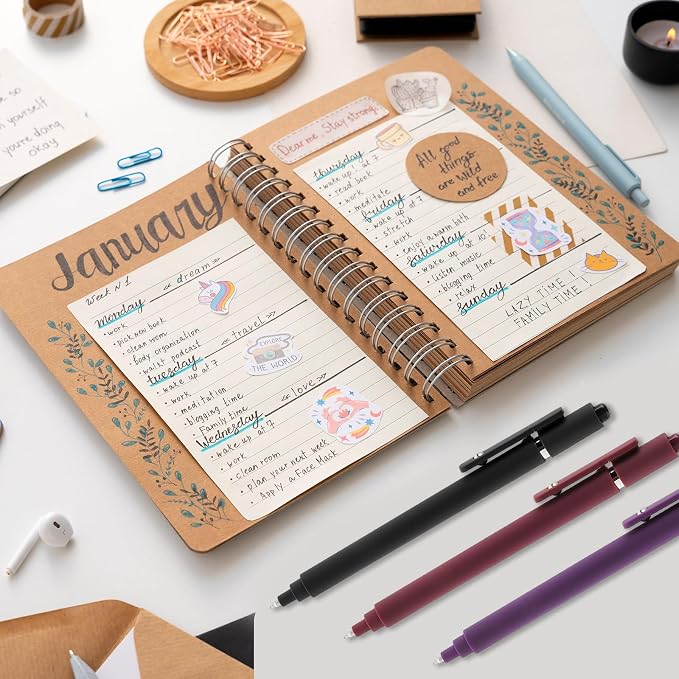 so
n yourself
you're doing
okay
January
Week N1
Monday
≪ dream ≫
• work
• pick new book
• clean room
• body organization
• walk+ podcast
Tuesday
≪ travel ≫
• wake up at 7
EXPLORE
THE WORLD
• work
• meditation
• blogging time
• Family time
≪ love ≫
Wednesday
• wake up at 7
• work
• clean room
• plan your next week
• Apply a Face Mask
Dear me, Stay strong.
thursday
• wake up! at 7
• read book
• work
• meditate
friday
• wake up at 7
• stretch
• work
• enjoy a warm bath
Saturday
• wake up at 10!
• listen music
• blogging time
• relax
Sunday
LAZY TIME!
FAMILY TIME!
All good
things
are wild
and free